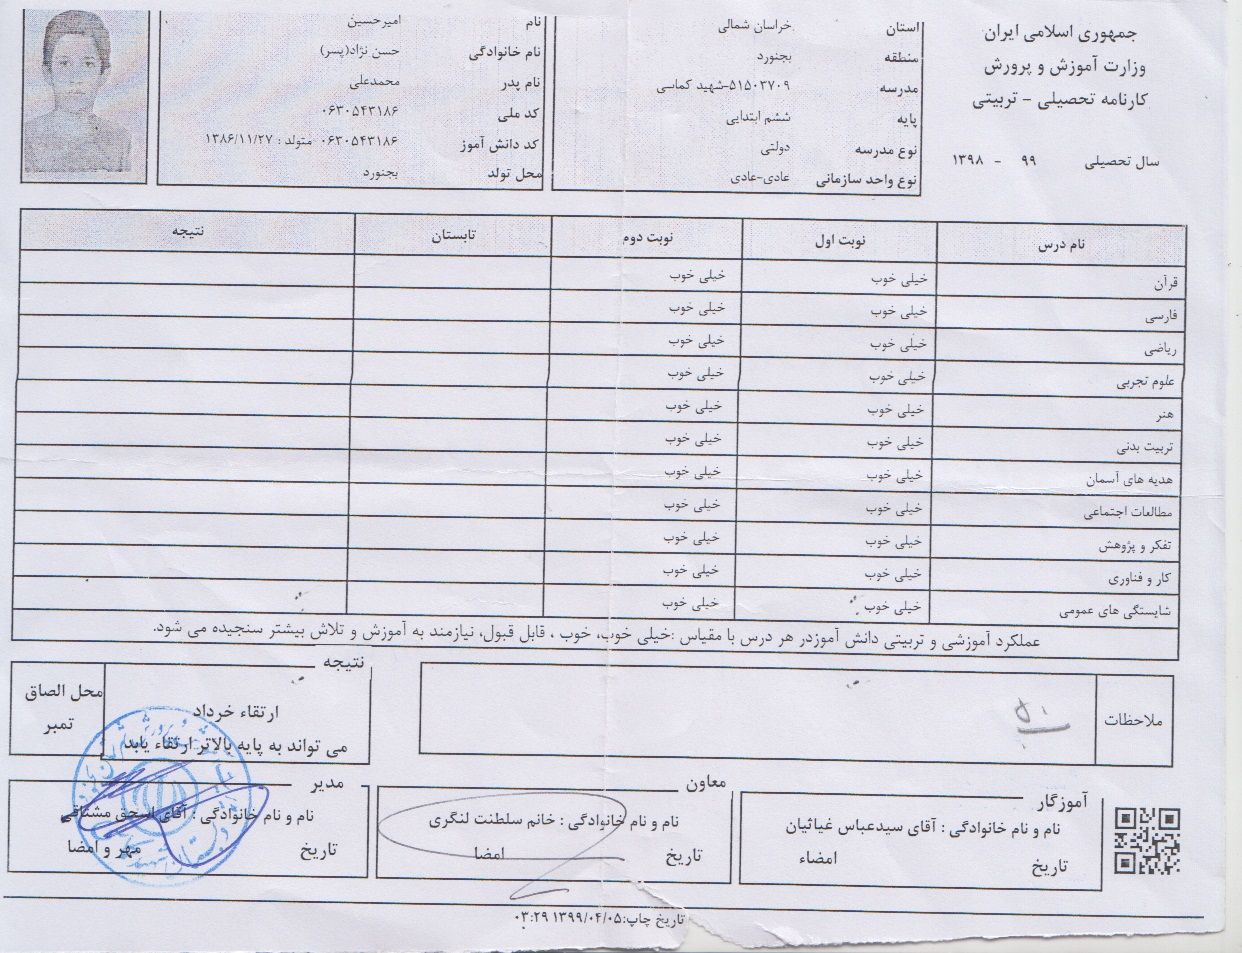 جمهوری اسلامی ایران
وزارت آموزش و پرورش
کارنامه تحصیلی - تربیتی
سال تحصیلی ۹۹ - ۱۳۹۸
استان خراسان شمالی
منطقه بجنورد
مدرسه ۵۱۵۰۳۷۰۹-شهید کماسی
پایه ششم ابتدایی
نوع مدرسه دولتی
نوع واحد سازمانی عادی-عادی
نام امیرحسین
نام خانوادگی حسن نژاد(پسر)
نام پدر محمدعلی
کد ملی ۰۶۳۰۵۴۳۱۸۶
کد دانش آموز ۰۶۳۰۵۴۳۱۸۶ متولد : ۱۳۸۶/۱۱/۲۷
محل تولد بجنورد
نام درس نوبت اول نوبت دوم تابستان نتیجه
قرآن خیلی خوب خیلی خوب
فارسی خیلی خوب خیلی خوب
ریاضی خیلی خوب خیلی خوب
علوم تجربی خیلی خوب خیلی خوب
هنر خیلی خوب خیلی خوب
تربیت بدنی خیلی خوب خیلی خوب
هدیه های آسمان خیلی خوب خیلی خوب
مطالعات اجتماعی خیلی خوب خیلی خوب
تفکر و پژوهش خیلی خوب خیلی خوب
کار و فناوری خیلی خوب خیلی خوب
شایستگی های عمومی خیلی خوب خیلی خوب
عملکرد آموزشی و تربیتی دانش آموزدر هر درس با مقیاس :خیلی خوب، خوب ، قابل قبول، نیازمند به آموزش و تلاش بیشتر سنجیده می شود.
ملاحظات
نتیجه
ارتقاء خرداد
می تواند به پایه بالاتر ارتقاء یابد
محل الصاق
تمبر
آموزگار
نام و نام خانوادگی : آقای سیدعباس غیاثیان
تاریخ امضاء
معاون
نام و نام خانوادگی : خانم سلطنت لنگری
تاریخ امضا
مدیر
نام و نام خانوادگی : آقای اسحق مشتاقی
تاریخ مهر و امضا
تاریخ چاپ:۱۳۹۹/۰۴/۰۵ ۰۳:۲۹